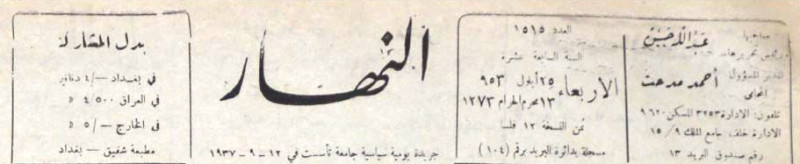 صاحبها
رئيس تحريرها
والمدير المسؤول
أحمد مدحت
المحامي
تلفون: الادارة ٣٢٥٣ المسكن ٩٦٢٠
الادارة خلف جامع الملك ١٥/٩
رقم صندوق البريد ١٣
العدد ١٥١٥
السنة السابعة عشرة
الاربعاء
٢٥ أيلول ٩٥٣
١٣ محرم الحرام ١٢٧٣
ثمن النسخة ١٢ فلسا
مسجلة بدائرة البريد برقم (١٠٤)
النهار
جريدة يومية سياسية جامعة تأسست في ١٢ - ٩ - ١٩٣٧
بدل المشاركة
في بغداد —/٤ دنانير
في العراق ٤/٥٠٠ »
في الخارج —/٥ »
مطبعة شفيق - بغداد